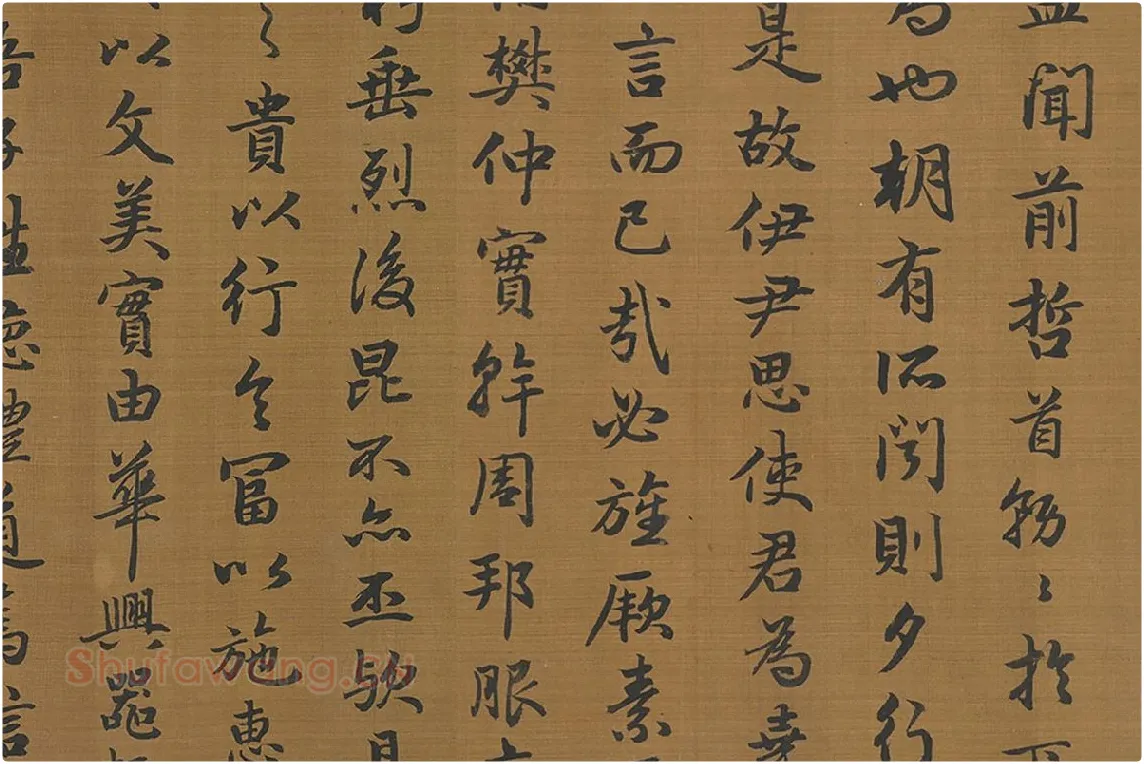 聞前哲首務〻於下
為也朝有所聞則夕行
是故伊尹思使君為堯
言而已哉必旌厥素
樊仲實幹周邦服
垂烈後昆不亦丕歟且
貴以行令富以施惠
以文美實由華興器
Shufawang.cn